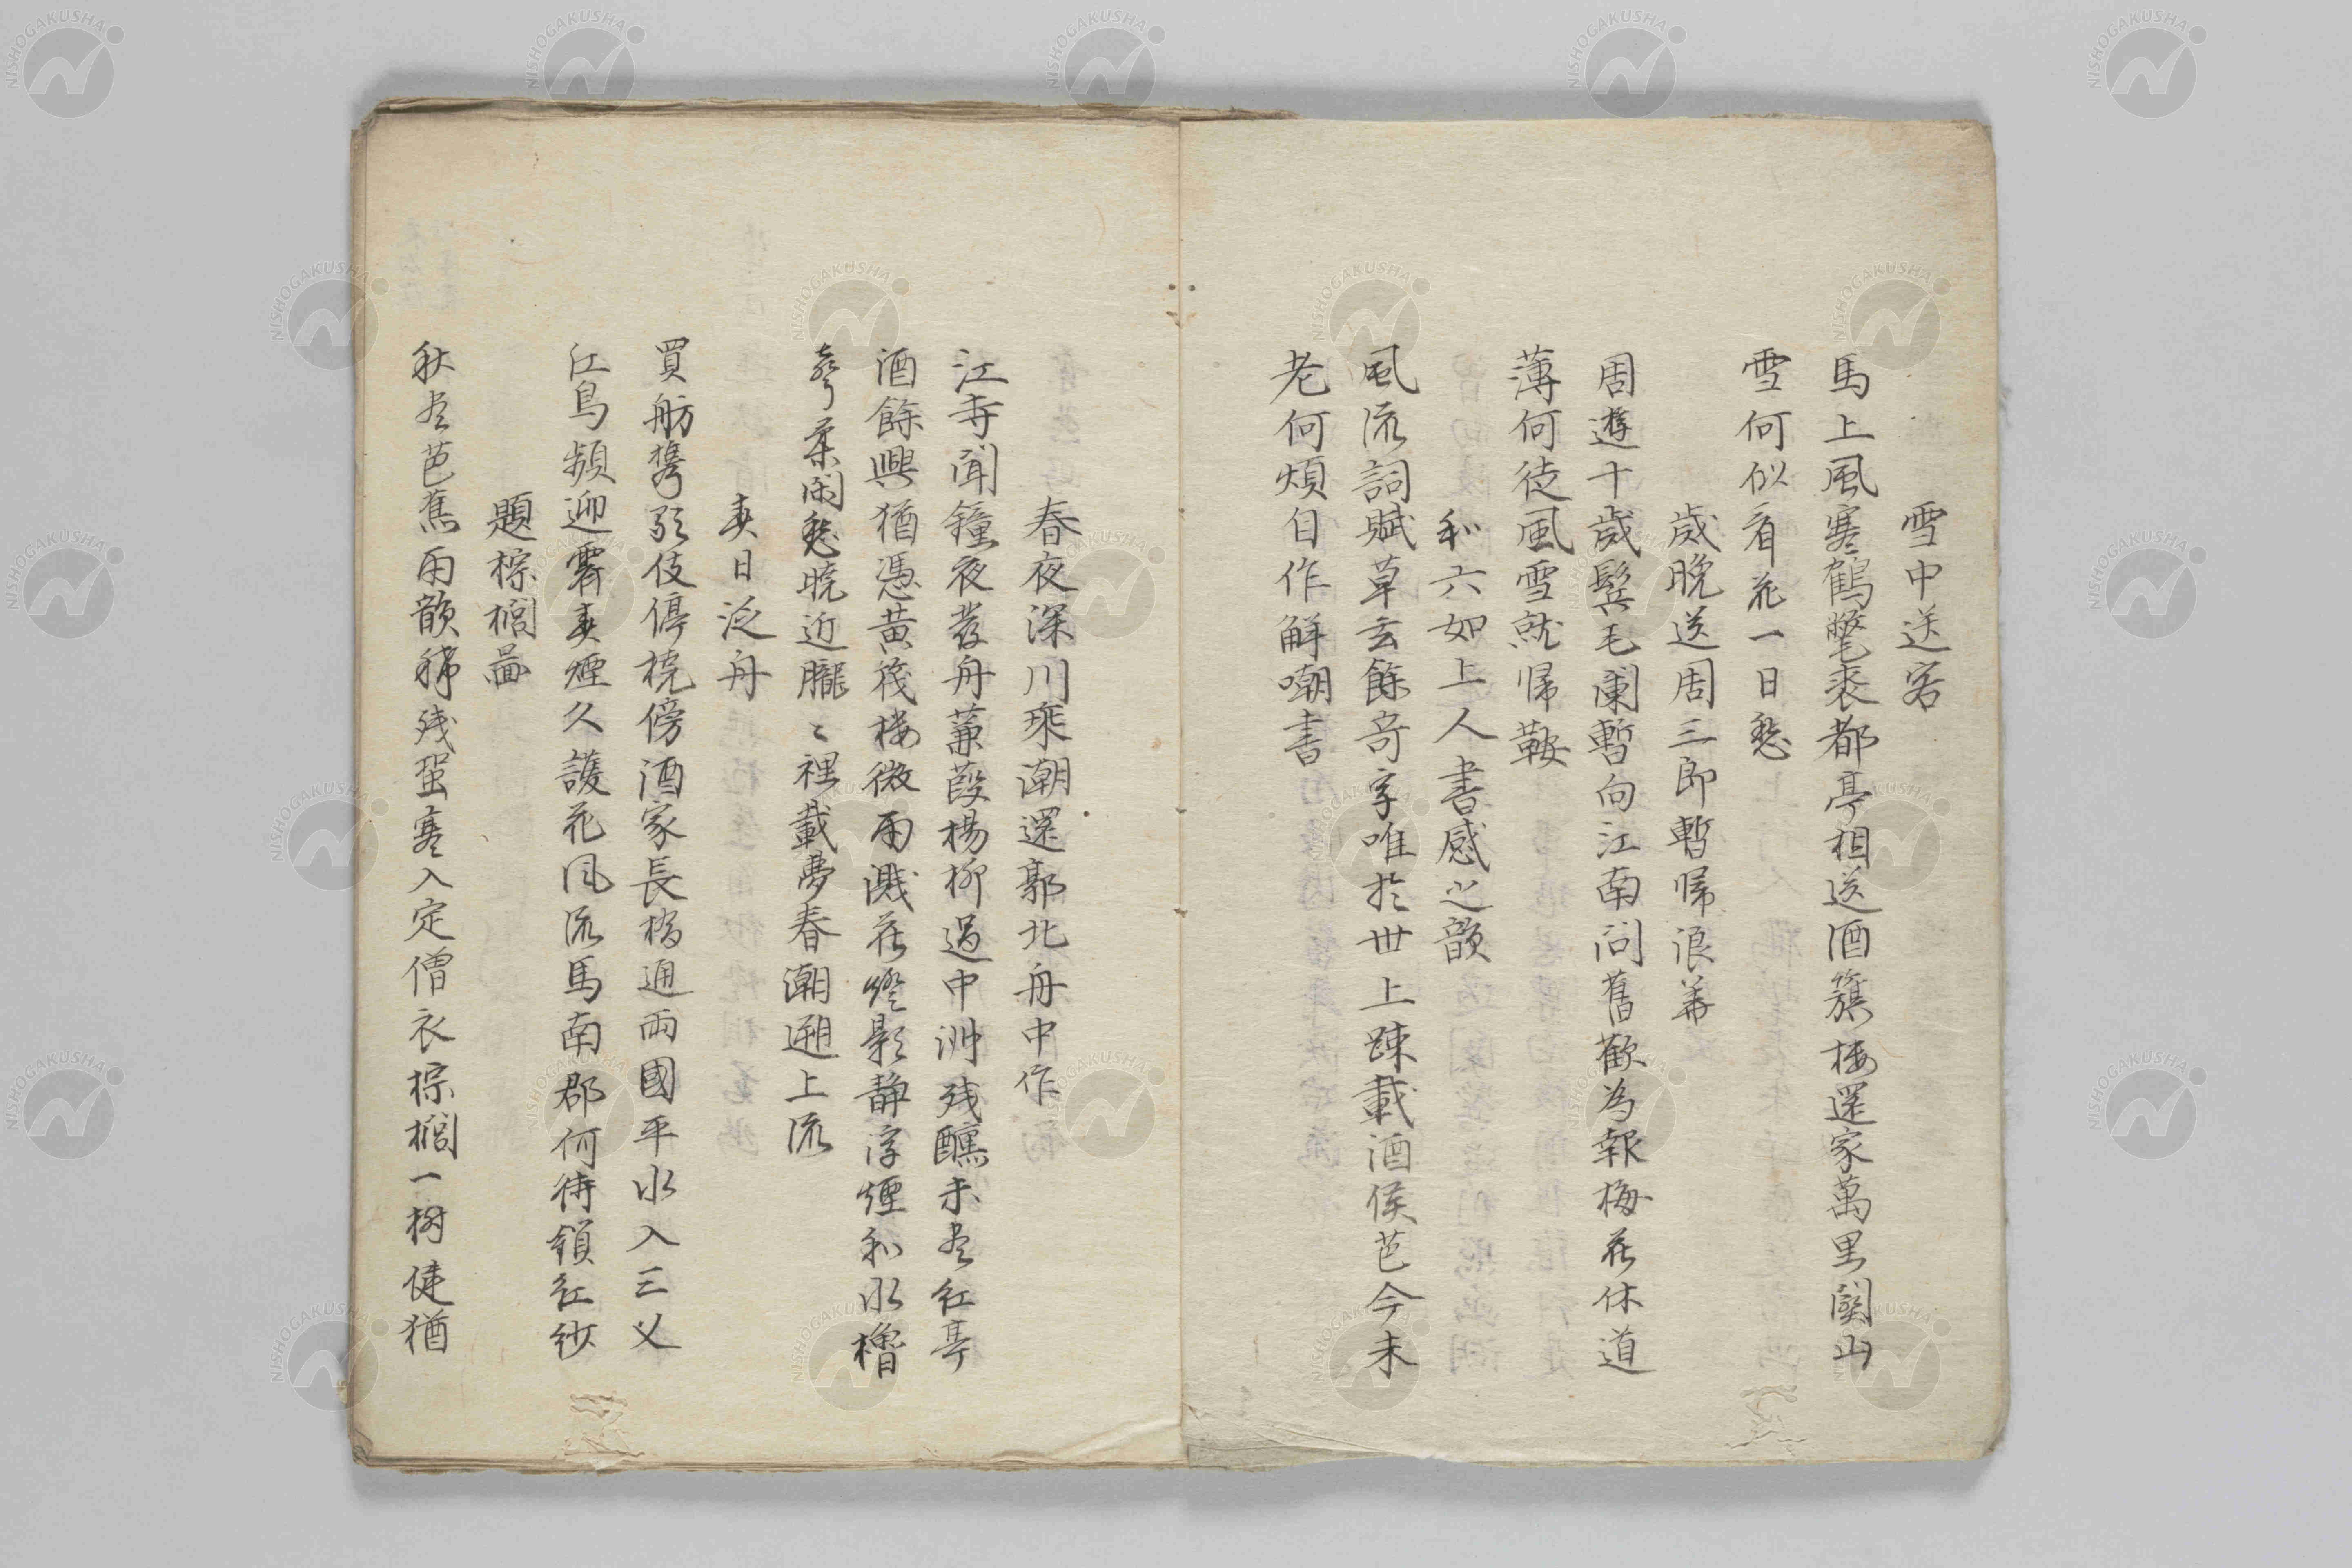 雪中送客
馬上風寒鶴氅裘都亭相送酒籏楼還家萬里関山
雪何似看花一日愁
歳晩送周三郎暫帰浪華
周遊十歳鬂毛闌暫向江南問舊歓為報梅花休道
薄何徒風雪就帰鞍
和六如上人書感之韻
風流詞賦草玄餘奇字唯於世上踈載酒侯芭今未
老何煩自作解嘲書
春夜深川乗潮還郭北舟中作
江寺聞鐘夜発舟蒹葭楊柳過中洲残醺未尽紅亭
酒餘興猶憑黄篾楼微雨濺花燈影静浮煙和水櫓
聲柔閑愁暁近朧〻裡載夢春潮遡上流
春日泛舟
買舫攜歌伎停桡傍酒家長橋通両國平水入三乂
江鳥頻迎霽春煙久護花風流馬南郡何待領紅紗
題棕櫚畾
秋尽芭蕉雨韻稀残蛩寒入定僧衣棕櫚一樹使猶
NISHOGAKUSHA